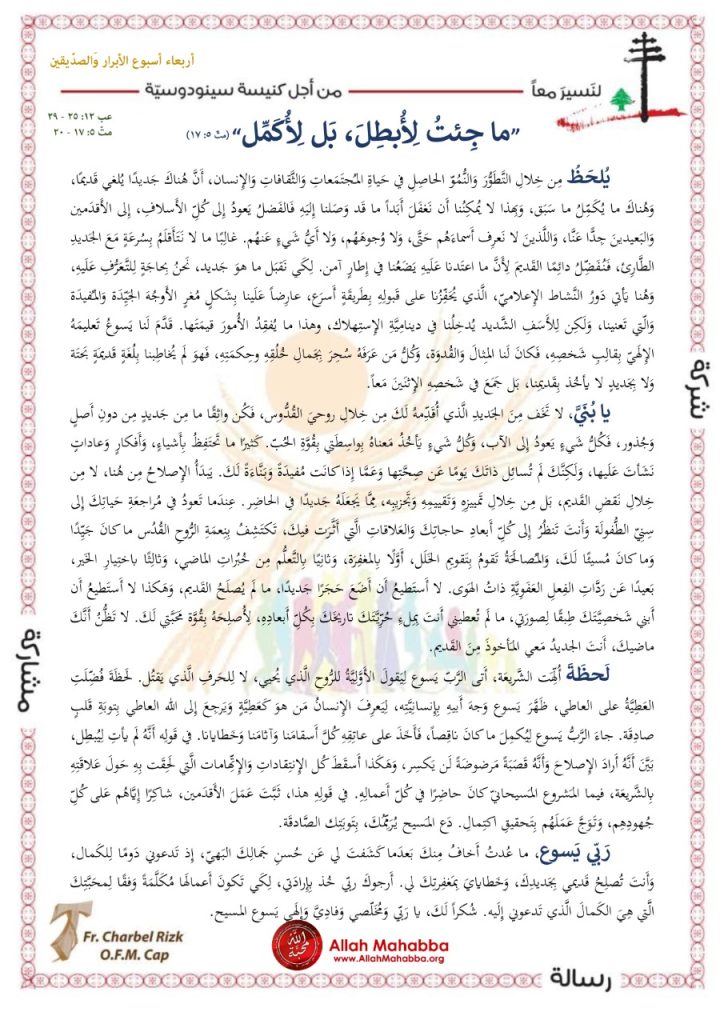 أربعاء أسبوع الأبرار وَالصدّيقين
لنَسيرَ معاً
من أجل كنيسة سينودوسيّة
عب ١٢: ٢٥ - ٢٩
متّ ٥: ١٧ - ٢٠
”ما جِئتُ لِأُبطِلَ، بَل لِأُكَمِّل“ (متّ ٥: ١٧)
يُلحَظُ مِن خِلالِ التَّطَوُّرَ وَالنُّمُوّ الحاصِلِ في حَياةِ المُجتَمَعاتِ وَالثَّقافاتِ وَالإنسان، أنَّ هُناكَ جَديدًا يُلغي قَديمًا،
وَهُناكَ ما يُكَمِّلُ ما سَبَق، وَبِهذا لا يُمكِنُنا أن نَغفَلَ أبَداً ما قَد وَصَلنا إلَيهِ فَالفَضلُ يَعودُ إلى كُلّ الأسلاف، إلى الأقدَمين
وَالبَعيدينَ جدًّا عَنَّا، وَاللَّذينَ لا نَعرِف أسماءَهُم حَتَّى، وَلا وُجوهَهُم، وَلا أيُّ شَيءٍ عَنهُم. غالبًا ما لا نَتَأَقلَمُ بِسُرعَةٍ مَعَ الجَديدِ
الطَّارِئ، فَنُفَضِّلُ دائِمًا القَديمَ لِأنَّ ما اعتَدنا عَلَيهِ يَضَعُنا في إطارٍ آمن. لِكَي نَقبَل ما هوَ جَديد، نَحنُ بِحاجَةٍ لِلتَّعَرُّفِ عَلَيهِ،
وَهُنا يَأتي دَورُ النَّشاط الإعلاميّ، الَّذي يُحَفِّزُنا على قَبولِهِ بِطَريقَةٍ أسرَع، عارِضاً عَلَينا بِشَكلٍ مُغرٍ الأوجُهَ الجَيِّدَةَ وَالمُفيدَةَ
وَالَّتي تَعنينا، وَلَكِن لِلأَسَفِ الشَّديد يُدخِلُنا في دينامِيَّةِ الإستِهلاك، وَهذا ما يُفقِدُ الأُمورَ قيمَتَها. قَدَّمَ لَنا يَسوعُ تَعليمَهُ
الإلهيّ بِقالِبِ شَخصِهِ، فَكانَ لَنا المِثالَ وَالقُدوَة، وَكُلُّ مَن عَرَفَهُ سُحِرَ بِجَمالِ خُلُقِهِ وَحِكمَتِهِ، فَهوَ لَم يُخاطِبنا بِلُغَةٍ قَديمَةٍ بَحتَة
وَلا بِجَديدٍ لا يأخُذ بِقَديمِنا، بَل جَمَعَ في شَخصِهِ الإثنَينِ مَعاً.
يا بُنَيَّ، لا تَخَف مِنَ الجَديدِ الَّذي أُقَدِّمهُ لَكَ مِن خِلالِ روحيَ القُدُّوس، فَكُن واثِقًا ما مِن جَديدٍ مِن دونِ أصلٍ
وَجُذور، فَكُلُّ شَيءٍ يَعودُ إلى الآب، وَكُلُّ شَيءٍ يَأخُذُ مَعناهُ بِواسِطَتي بِقُوَّةِ الحُبّ. كَثيرًا ما تَحتَفِظُ بِأشياءٍ، وَأفكارٍ وَعاداتٍ
نَشَأتَ عَلَيها، وَلَكِنَّكَ لَم تُسائِل ذاتَكَ يَومًا عَن صِحَّتِها وَعَمَّا إذا كانَت مُفيدَةً وَبَنَّاءَةً لَكَ. يَبدَأُ الإصلاحُ مِن هُنا، لا مِن
خِلالِ نَقضِ القَديم، بَل مِن خِلالِ تَمييزِهِ وَتَقييمِهِ وَتَحزيبِهِ، مِمَّا يَجعَلَهُ جَديدًا في الحاضِر. عِندَما تَعودُ في مُراجَعَةِ حَياتِكَ إلى
سِنيّ الطُّفولَة وَأنتَ تَنظُرُ إلى كُلّ أبعادِ حاجاتِكَ وَالعَلاقاتِ الَّتي أثَّرَت فيكَ، تَكتَشِفُ بِنِعمَةِ الرُّوحِ القُدُس ما كانَ جَيِّدًا
وَما كانَ مُسيئًا لَكَ، وَالمُصالَحَةُ تَقومُ بِتَقويمِ الخَلَل، أوَّلًا بِالمَغفِرَة، وَثانيًا بِالتَّعَلُّم مِن خُبُراتِ الماضي، وَثالثًا باختِيارِ الخَير،
بَعيدًا عَن رَدَّاتِ الفِعلِ العَفَوِيَّةِ ذاتُ الهَوى. لا أستَطيعُ أن أضَعَ حَجَرًا جَديدًا، ما لَم يُصلَحُ القَديم، وَهَكَذا لا أستَطيعُ أن
أبني شَخصِيَّتَكَ طِبقًا لِصورَتي، ما لَم تُعطيني أنتَ بِملءِ حُرِّيَّتَكَ تاريخَكَ بِكُلّ أبعادِهِ، لِأُصلِحَهُ بِقُوَّةِ مَحَبَّتي لَكَ. لا تَظُنُّ أنَّكَ
ماضيكَ، أنتَ الجديدُ مَعي المَأخوذَ مِنَ القَديم.
لَحظَةَ أُلِّهَت الشَّريعَة، أتى الرَّبُّ يَسوع لِيَقولَ الأَوَّلِيَّةُ للرُّوحِ الَّذي يُحيي، لا لِلحَرفِ الَّذي يَقتُل. لَحظَةَ فُضِّلَتِ
العَطِيَّةُ على العاطي، ظَهَّرَ يَسوع وَجهَ أبيهِ بِإنسانِيَّتِهِ، لِيَعرِفَ الإنسانُ مَن هوَ كَعَطِيَّةٍ وَيَرجِعَ إلى الله العاطي بِتوبَةِ قَلبٍ
صادِقَة. جاءَ الرَّبُّ يَسوع لِيُكمِلَ ما كانَ ناقِصاً، فَأخَذَ على عاتِقِهِ كُلَّ أسقامَنا وَآثامَنا وَخَطايانا. في قَولِهِ أنَّهُ لَم يأتِ لِيُبطِل،
بَيَّنَ أنَّهُ أرادَ الإصلاحَ وَأنَّهُ قَصَبَةً مَرضوضَةً لَن يَكسِر، وَهَكَذا أسقَطَ كُل الإنتِقاداتِ وَالإتِّهاماتِ الَّتي لَحِقَت بِهِ حَولَ عَلاقَتِهِ
بِالشَّريعَة، فيما المَشروع المَسيحانيّ كانَ حاضِرًا في كُلّ أعمالِهِ. في قَولِهِ هذا، ثَبَّتَ عَمَلَ الأقدَمين، شاكِرًا إيَّاهُم عَلى كُلِّ
جُهودِهِم، وَتَوَّجَ عَمَلَهُم بِتَحقيقِ اكتِمالِ. دَع المَسيح يُرَمِّمُكَ، بِتَوبَتِكَ الصَّادقَة.
رَبّي يَسوع، ما عُدتُ أخافُ مِنكَ بَعدَما كَشَفتَ لي عَن حُسنِ جَمالِكَ البَهيّ، إذ تَدعوني دَومًا لِلكَمال،
وَأنتَ تُصلِحُ قَديمي بِجَديدِكَ، وَخَطايايَ بِمَغفِرتِكَ لي. أرجوكَ ربّي خُذ بِإرادَتي، لِكَي تَكونَ أعمالها مُكَلَّمَةً وَفقًا لِمحَبَّتِكَ
الَّتي هِيَ الكَمالُ الَّذي تَدعوني إلَيهِ. شُكراً لَكَ، يا رَبّي وَمُخَلّصي وَفاديَّ وَإلهي يَسوع المسيح.
شركة
مشاركة
رسالة
Fr. Charbel Rizk
O.F.M. Cap
الله محبّة
Allah Mahabba
www.AllahMahabba.org